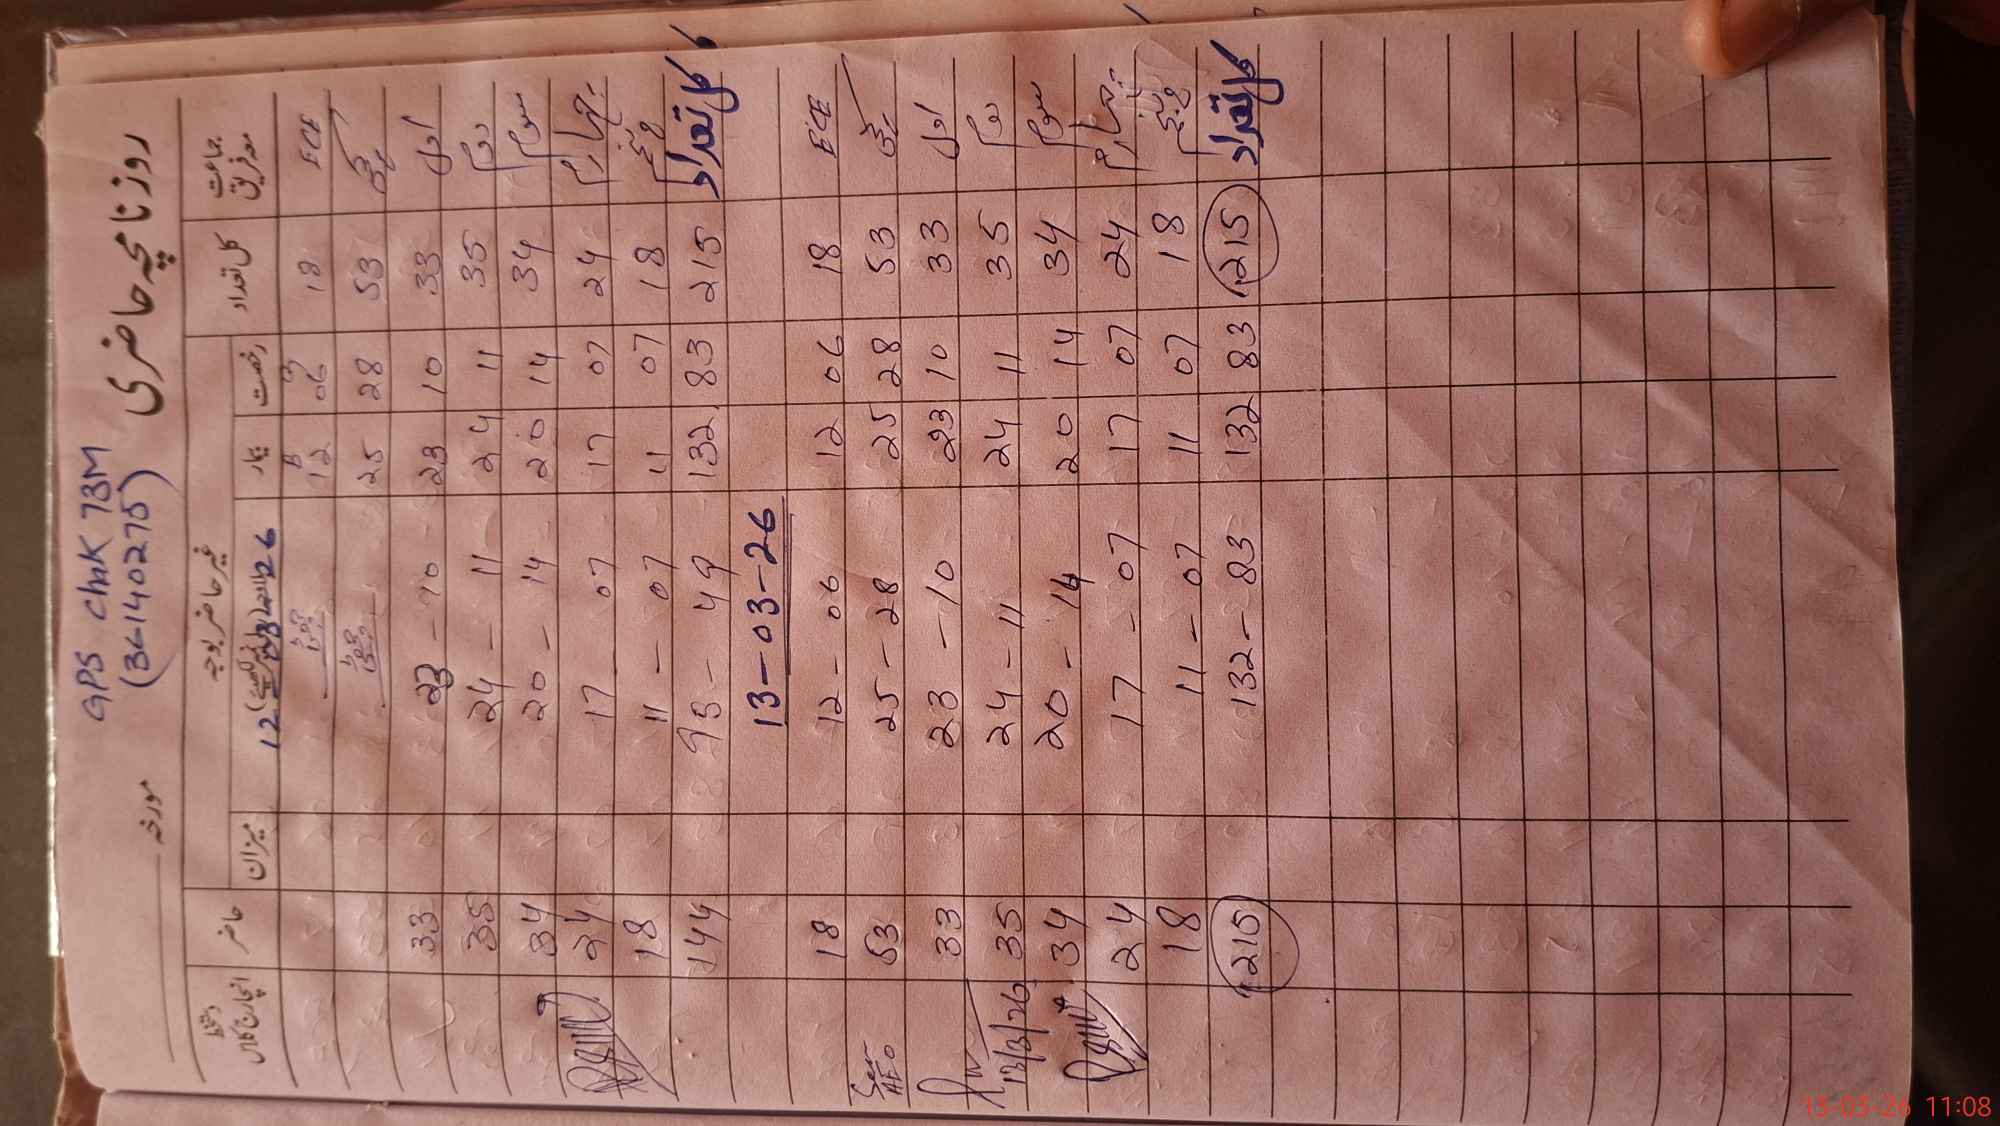 GPS Chak 73M
(36140275)
روزنامچہ حاضری
مورخہ
جماعت معہ فریق کل تعداد غیر حاضر بوجہ حاضر دستخط انچارج کلاس
رخصت بیمار میزان
12-03-2026
G B
ECE 18 06 12
کچی 53 28 25
اول 33 10 23 23 - 10 33
دوم 35 11 24 24 - 11 35
سوم 34 14 20 20 - 14 34
چہارم 24 07 17 17 - 07 24
پنجم 18 07 11 11 - 07 18
کل تعداد 215 83 132 95 - 49 144
13-03-26
ECE 18 06 12 12 - 06 18
کچی 53 28 25 25 - 28 53
اول 33 10 23 23 - 10 33
دوم 35 11 24 24 - 11 35
سوم 34 14 20 20 - 14 34
چہارم 24 07 17 17 - 07 24
پنجم 18 07 11 11 - 07 18
کل تعداد 215 83 132 132 - 83 215
Seen
AEO
13/3/26
13-03-26 11:08